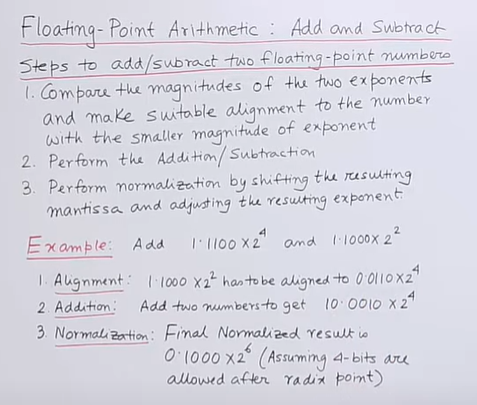 Floating-Point Arithmetic : Add and Subtract
Steps to add/subract two floating-point numbers
1. Compare the magnitudes of the two exponents
and make suitable alignment to the number
with the smaller magnitude of exponent
2. Perform the Addition/Subtraction
3. Perform normalization by shifting the resulting
mantissa and adjusting the resulting exponent.
Example: Add 1·1100 X 2⁴ and 1·1000 X 2²
1. Alignment: 1·1000 X 2² has to be aligned to 0·0110 X 2⁴
2. Addition: Add two numbers to get 10·0010 X 2⁴
3. Normalization: Final Normalized result is
0·1000 X 2⁶ (Assuming 4-bits are
allowed after radix point)